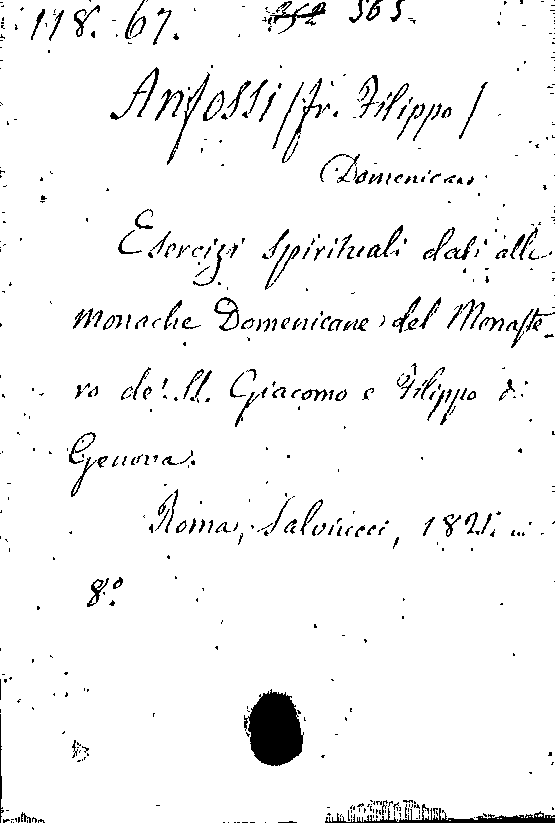 118. 67. 565.
Anfossi (fr. Filippo)
Domenicano
Esercizi spirituali dati alle
monache Domenicane del Monaste-
ro de' SS. Giacomo e Filippo di
Genova.
Roma, Salviucci, 1821. in
8.º